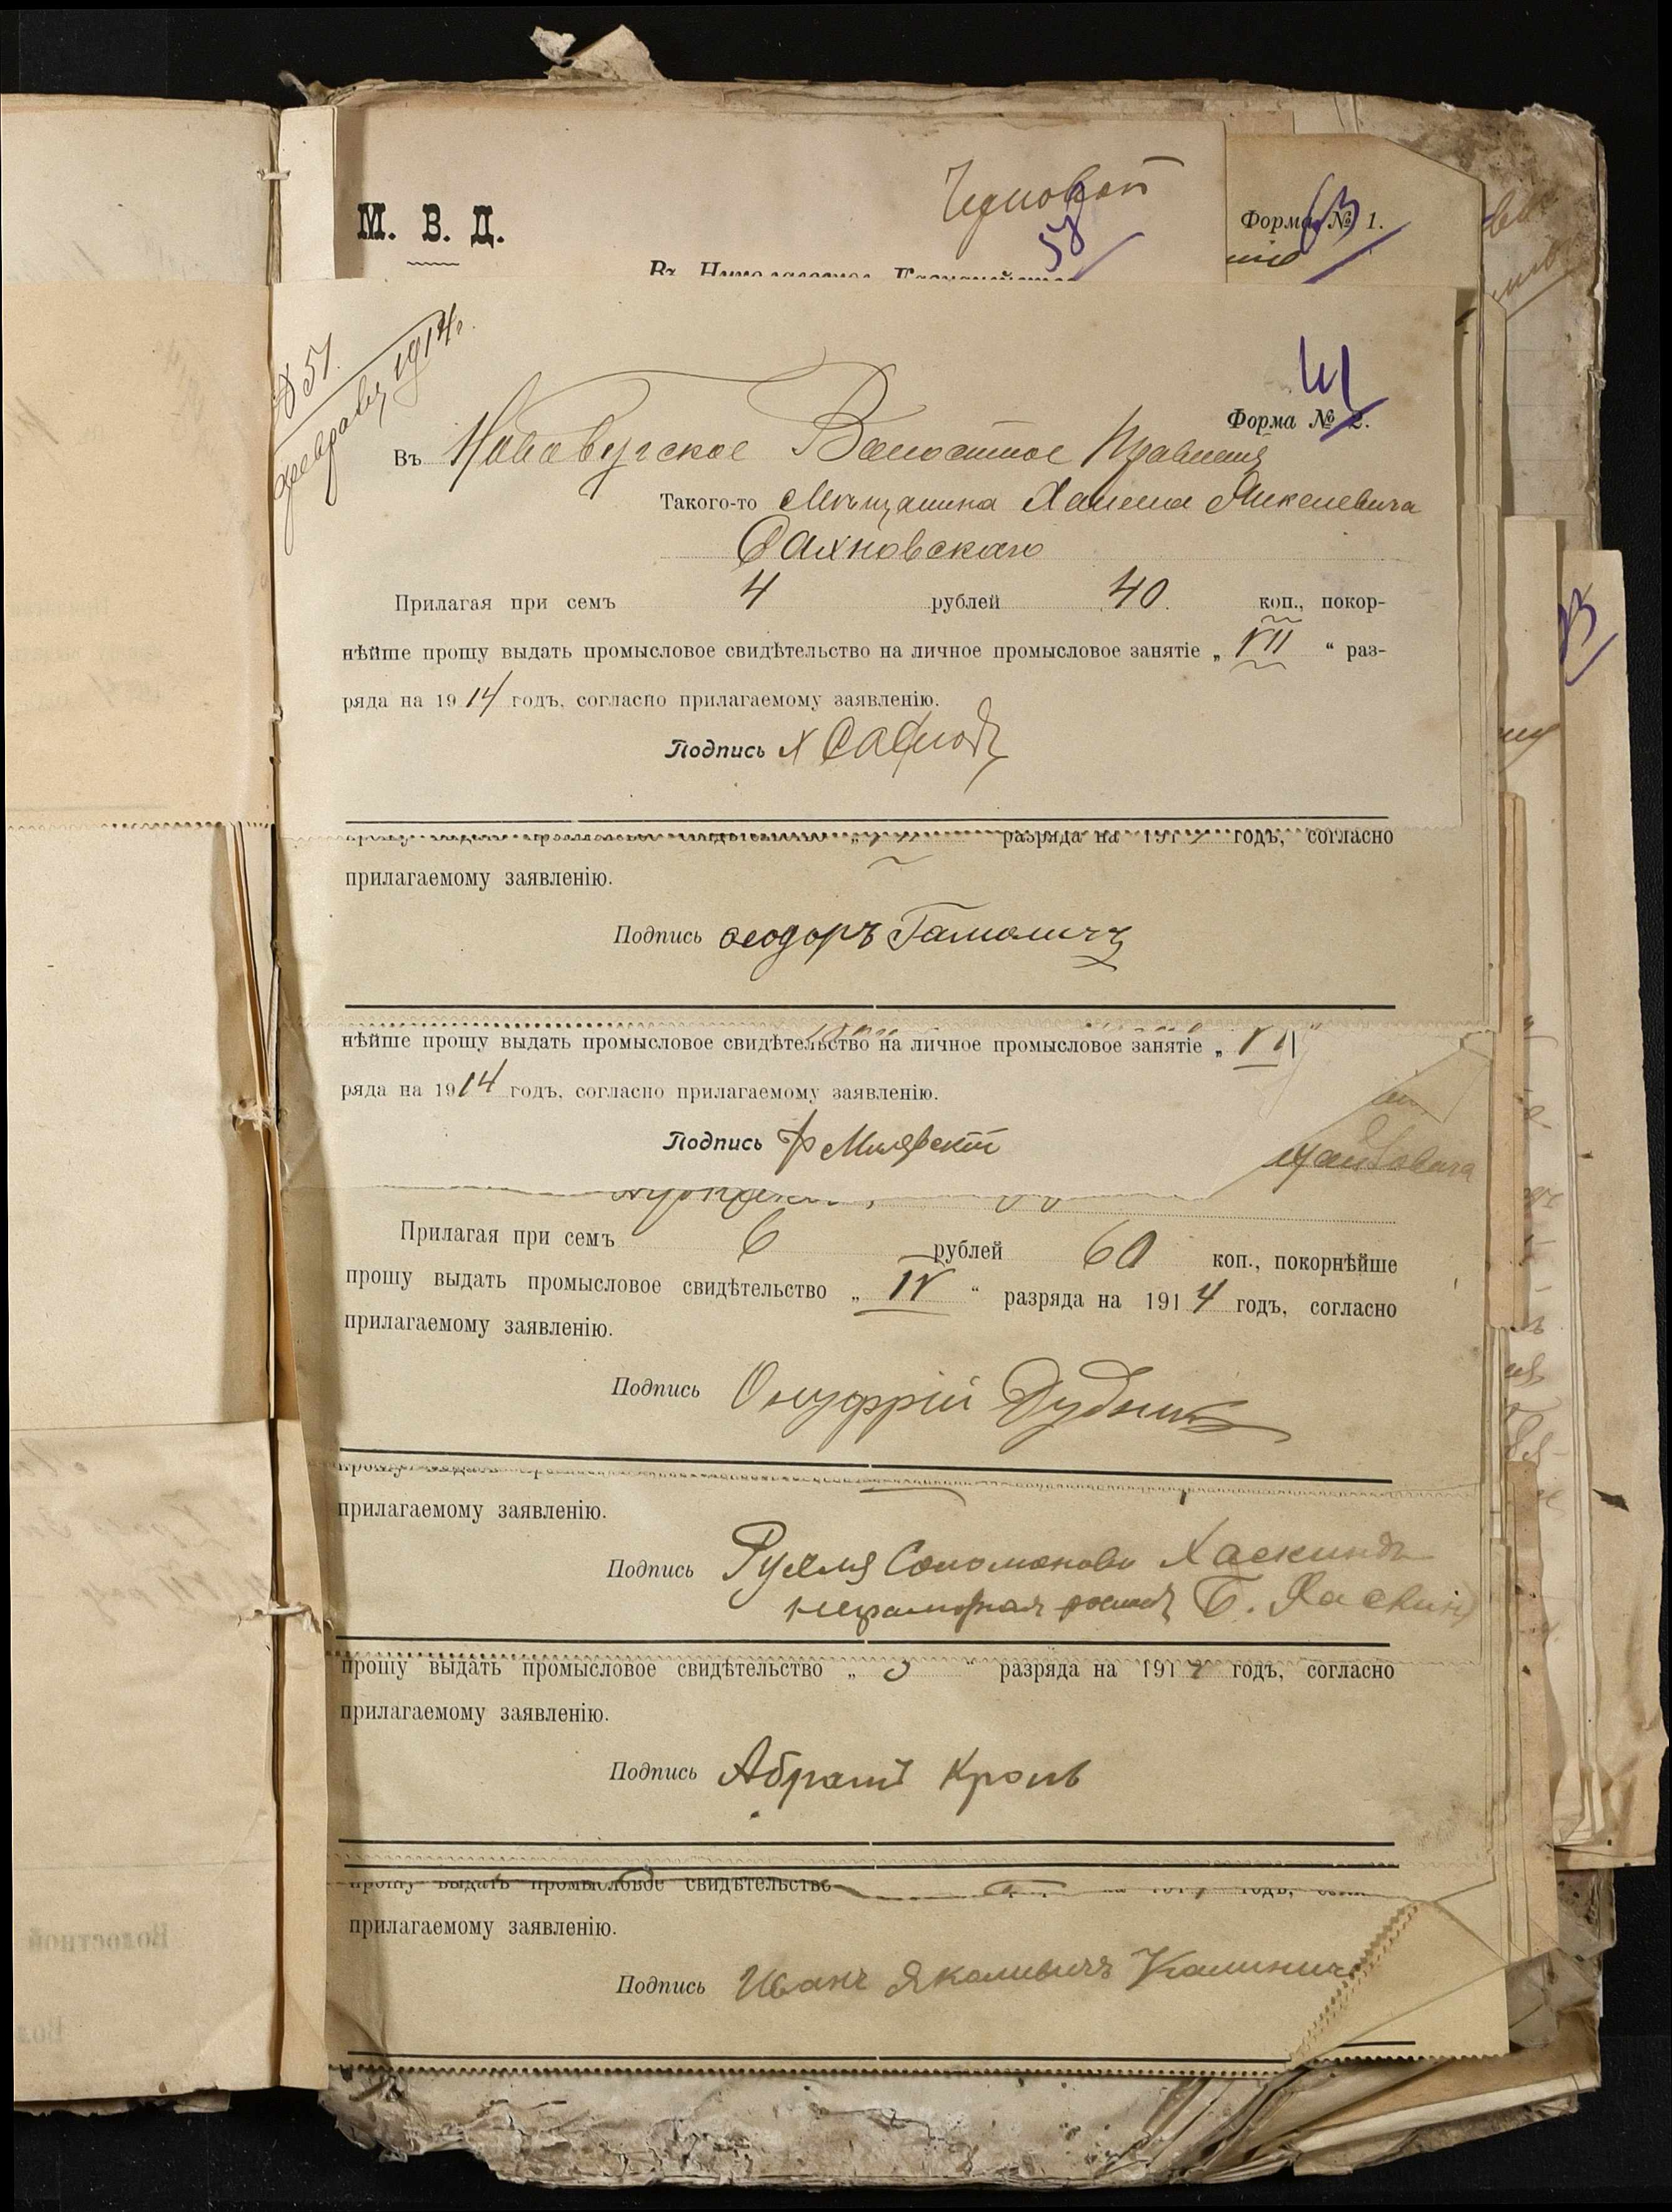 М. В. Д.
58
Форма № 1.
63
№ 51.
февраля 1914 г.
41
Форма № 2.
Въ Новобугское Волостное Правленіе
Такого-то Мѣщанина Хаима Янкелевича
Сахновскаго
Прилагая при семъ 4 рублей 40 коп., покор-
нѣйше прошу выдать промысловое свидѣтельство на личное промысловое занятіе „ VII “ раз-
ряда на 1914 годъ, согласно прилагаемому заявленію.
Подпись Х
разряда на 191 годъ, согласно
прилагаемому заявленію.
Подпись Ѳеодоръ
нѣйше прошу выдать промысловое свидѣтельство на личное промысловое занятіе „
ряда на 1914 годъ, согласно прилагаемому заявленію.
Подпись Ф Милявскій
Прилагая при семъ 6 рублей 60 коп., покорнѣйше
прошу выдать промысловое свидѣтельство „ IV “ разряда на 1914 годъ, согласно
прилагаемому заявленію.
Подпись Онуфрій Дубникъ
прилагаемому заявленію.
Подпись Рухля Соломоновн Хаскиндъ
неграмотная Б. Хаскинд
прошу выдать промысловое свидѣтельство „ 3 “ разряда на 1914 годъ, согласно
прилагаемому заявленію.
Подпись Абрамъ Кроль
прошу выдать промысловое свидѣтельство
прилагаемому заявленію.
Подпись Иванъ Якимовичъ Калинич